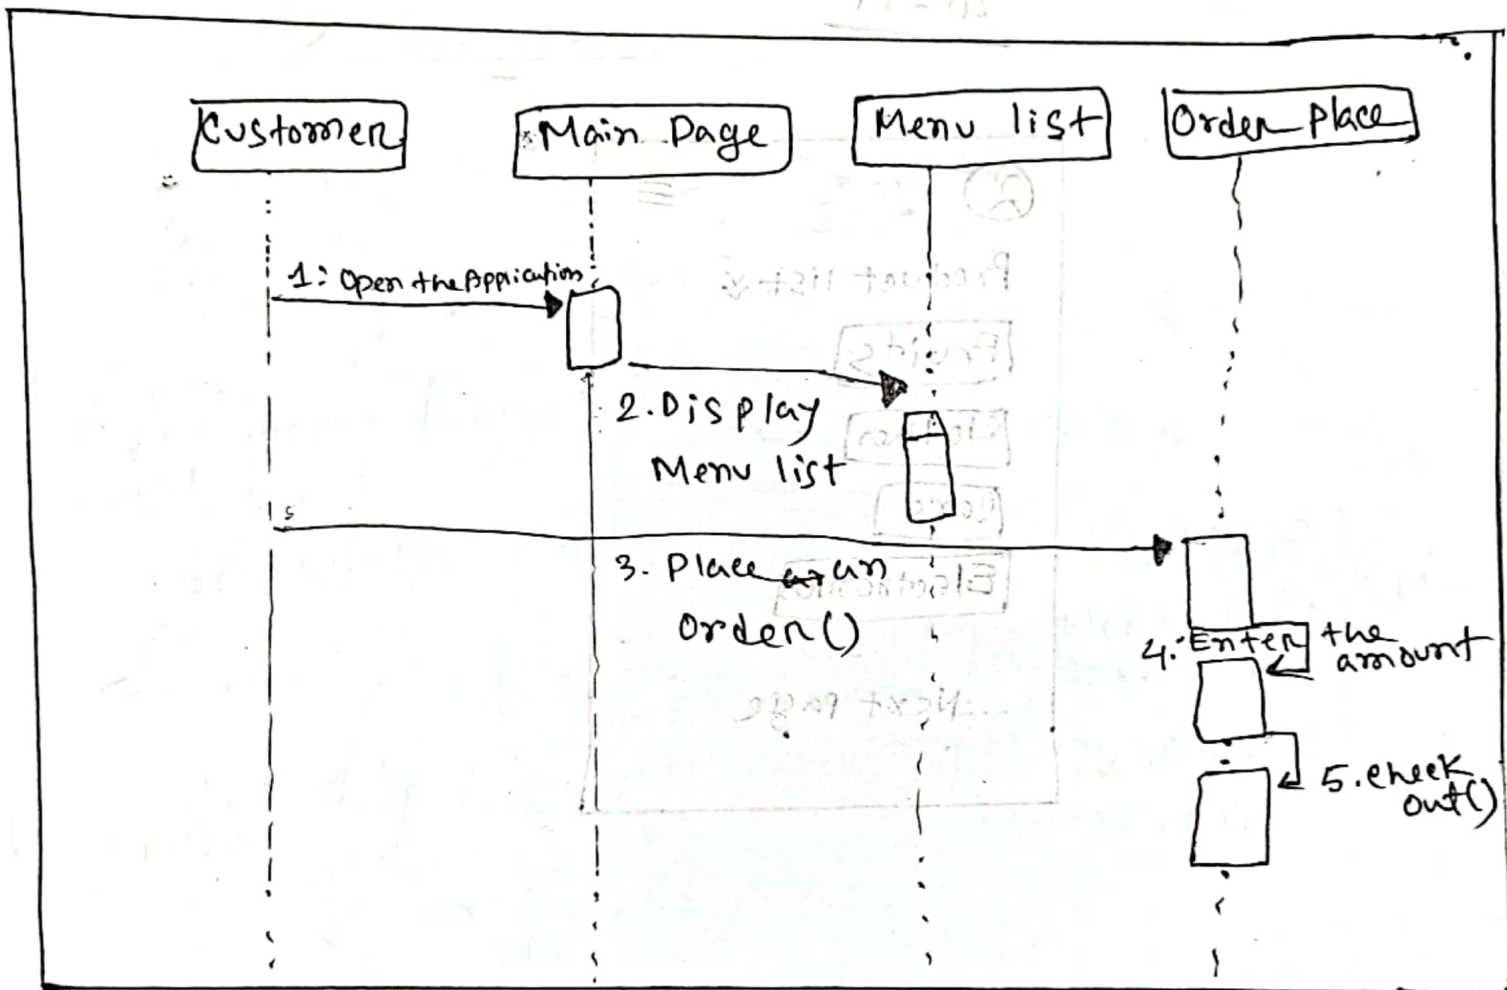 Customer
Main Page
Menu list
Order place
1: Open the Application
2. Display
Menu list
3. Place an
order()
4. Enter the
amount
5. check
out()
Product list
Next page